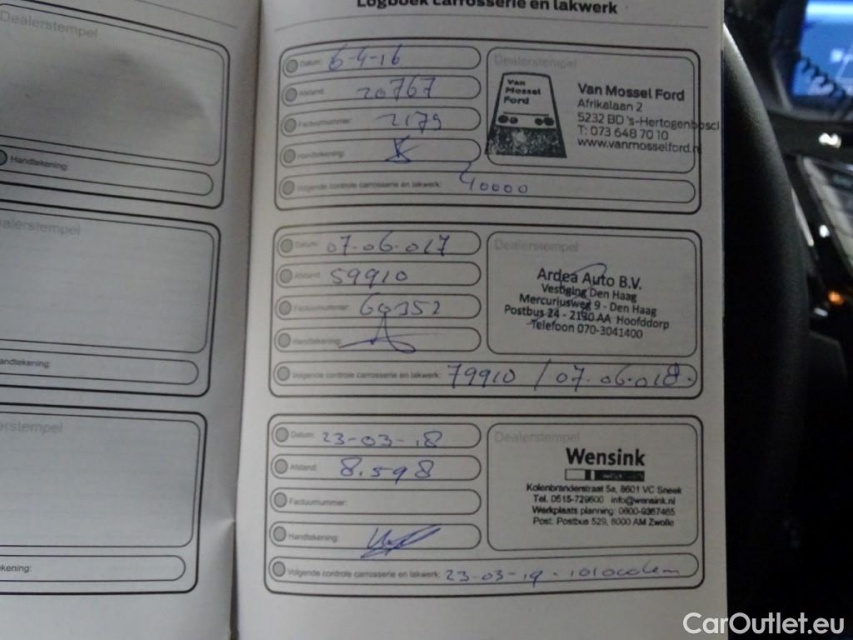 Logboek carrosserie en lakwerk
Dealerstempel
Handtekening:
Dealerstempel
Handtekening:
Dealerstempel
Handtekening:
Datum: 6-4-16
Afstand: 20767
Factuurnummer: 2179
Handtekening:
Volgende controle carrosserie en lakwerk: 40000
Dealerstempel
Van Mossel Ford
Van Mossel Ford
Afrikalaan 2
5232 BD 's-Hertogenbosch
T: 073 648 70 10
www.vanmosselford.n
Datum: 07-06-017
Afstand: 59910
Factuurnummer: 69352
Handtekening:
Volgende controle carrosserie en lakwerk: 79910 / 07-06-018.
Dealerstempel
Ardea Auto B.V.
Vestiging Den Haag
Mercuriusweg 9 - Den Haag
Postbus 24 - 2130 AA Hoofddorp
Telefoon 070-3041400
Datum: 23-03-18
Afstand: 8.598
Factuurnummer:
Handtekening:
Volgende controle carrosserie en lakwerk: 23-03-19 -
Dealerstempel
Wensink
Kolenbranderstraat 5a, 8601 VC Sneek
Tel. 0515-729600 info@wensink.nl
Werkplaats planning: 0800-9367465
Post: Postbus 529, 8000 AM Zwolle
CarOutlet.eu